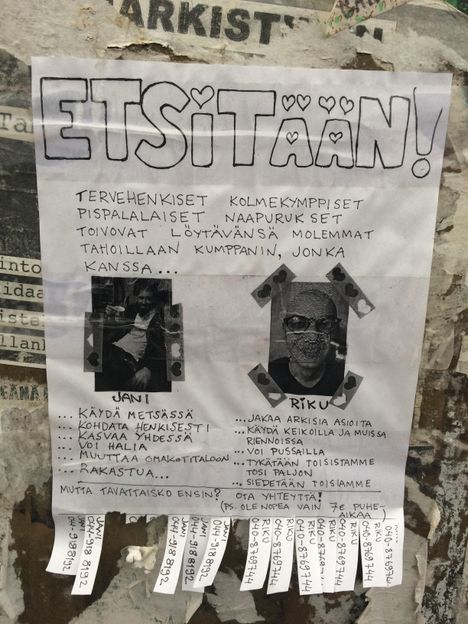 ARKIST
ETSITÄÄN!
TERVEHENKISET KOLMEKYMPPISET
PISPALALAISET NAAPURUKSET
TOIVOVAT LÖYTÄVÄNSÄ MOLEMMAT
TAHOILLAAN KUMPPANIN, JONKA
KANSSA...
JANI
... KÄYDÄ METSÄSSÄ
... KOHDATA HENKISESTI
... KASVAA YHDESSÄ
... VOI HALIA
... MUUTTAA OMAKOTITALOON
... RAKASTUA...
RIKU
... JAKAA ARKISIA ASIOITA
... KÄYDÄ KEIKOILLA JA MUISSA
RIENNOISSA
... VOI PUSSAILLA
... TYKÄTÄÄN TOISISTAMME
TOSI PALJON
... SIEDETÄÄN TOISIAMME
MUTTA TAVATTAISKO ENSIN? OTA YHTEYTTÄ!
(PS. OLE NOPEA VAIN 7e PUHE-
AIKAA)
JANI
041-918 8192
JANI
041-918 8192
JANI
041-918 8192
JANI
041-918 8192
RIKU
040-8769744
RIKU
040-8769744
RIKU
040-8769744
RIKU
040-8769744
RIKU
040-8769744